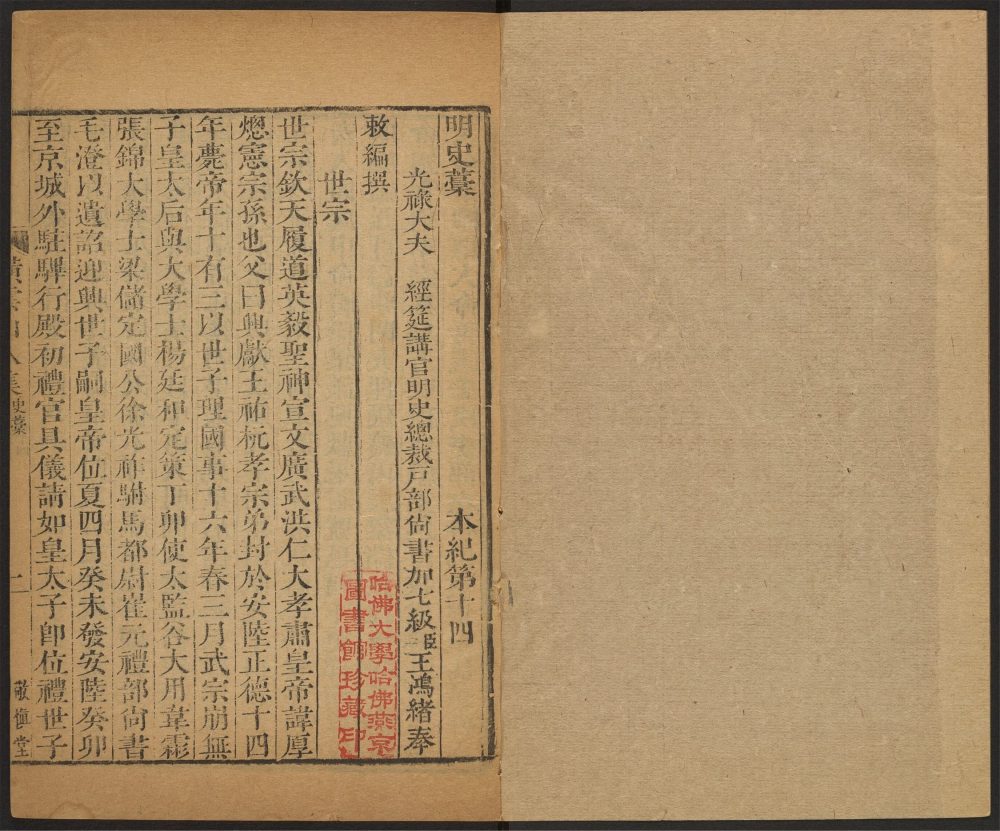 明史藁　本紀第十四
光祿大夫　經筵講官明史總裁戶部尙書加七級臣王鴻緒奉
敕編撰
世宗
世宗欽天履道英毅聖神宣文廣武洪仁大孝肅皇帝諱厚
熜憲宗孫也父曰興獻王祐杬孝宗弟封於安陸正德十四
年薨帝年十有三以世子理國事十六年春三月武宗崩無
子皇太后與大學士楊廷和定策丁卯使太監谷大用韋霦
張錦大學士梁儲定國公徐光祚駙馬都尉崔元禮部尙書
毛澄以遺詔迎興世子嗣皇帝位夏四月癸未發安陸癸卯
至京城外駐驆行殿初禮官具儀請如皇太子卽位禮世子
史藁
一
敬愼堂
哈佛大學哈佛燕京
圖書館珍藏印